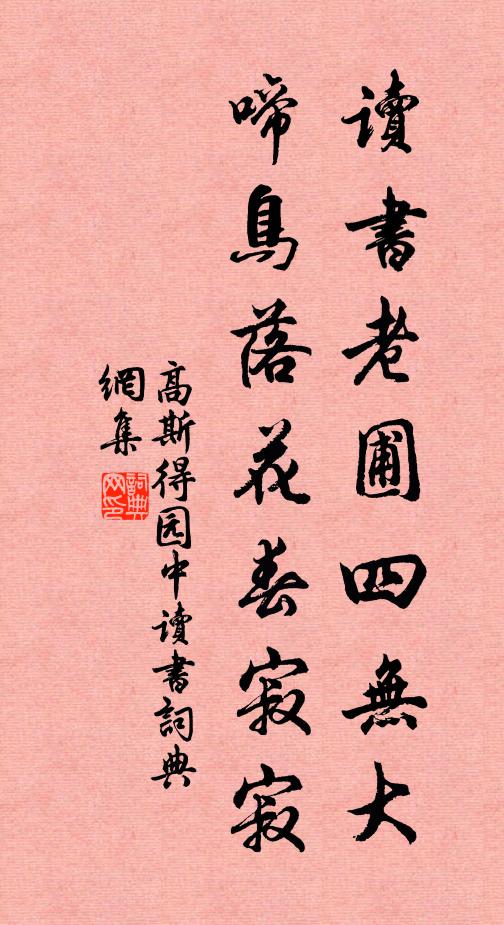 读書老圃四無大
啼鳥落花春寂寂
高斯得园中讀書詞典
網集
詞典
网印